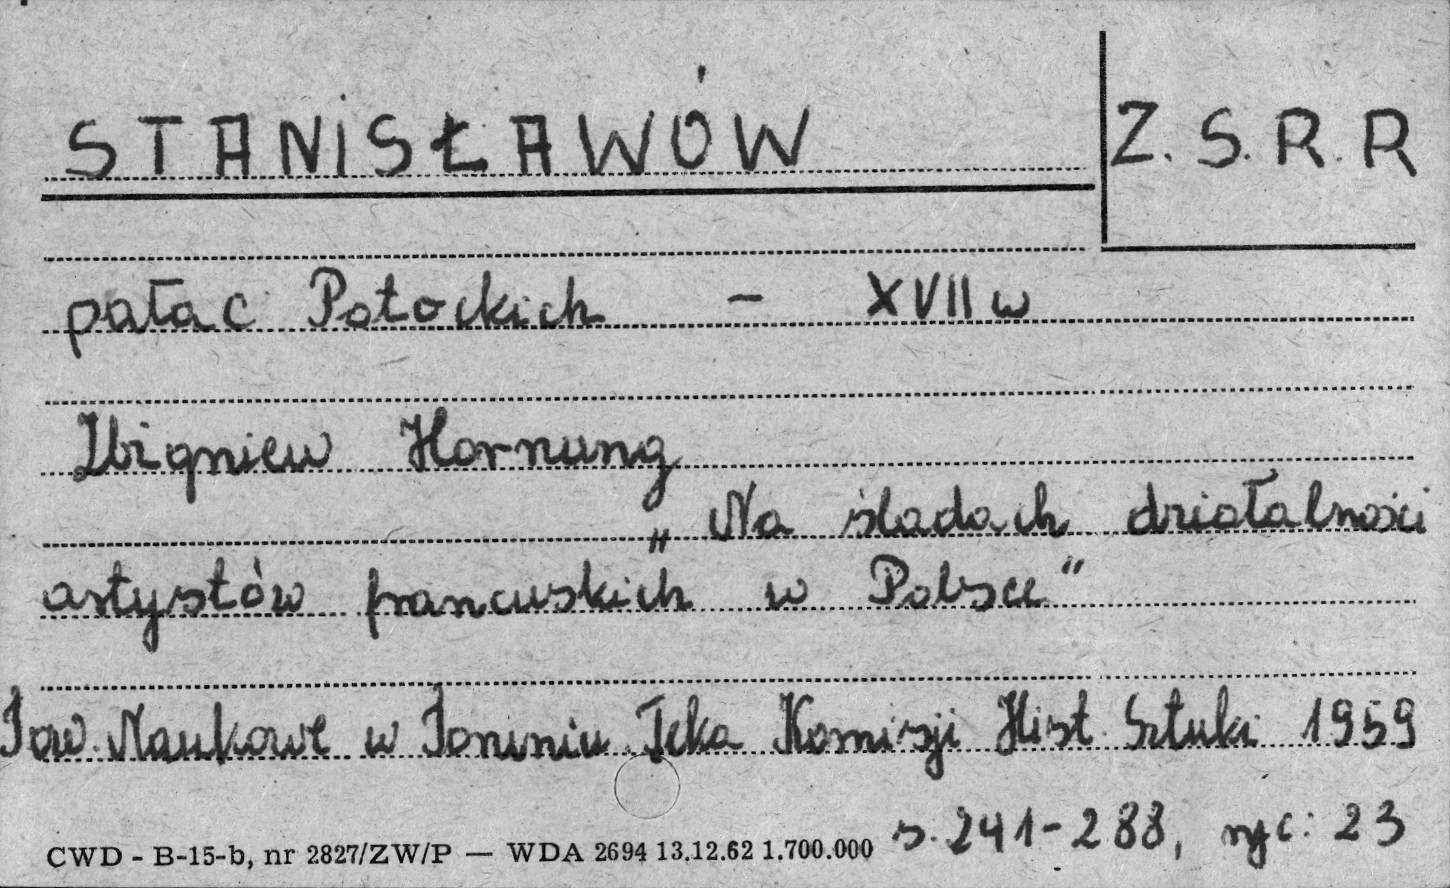 STANISŁAWÓW
Z.S.R.R
pałac Potockich - XVII w
Zbigniew Hornung
„Na śladach działalności
artystów francuskich w Polsce"
Tow. Naukowe w Toruniu. Teka Komisji Hist. Sztuki 1959
s. 241-288, ryc: 23
CWD - B-15-b, nr 2827/ZW/P — WDA 2694 13.12.62 1.700.000